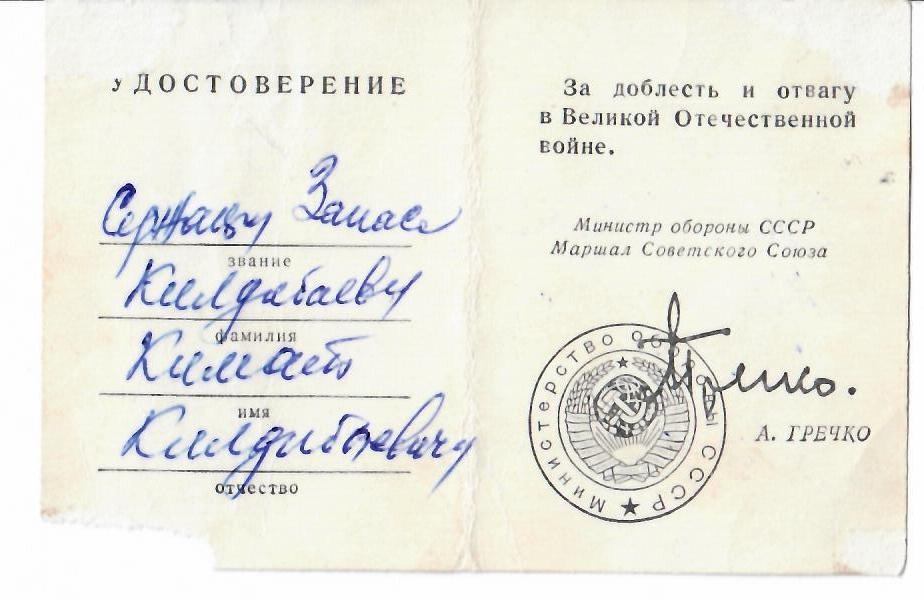 УДОСТОВЕРЕНИЕ
Сержанту Запаса
звание
Килдибаеву
фамилия
имя
Килдибаевичу
отчество
За доблесть и отвагу
в Великой Отечественной
войне.
Министр обороны СССР
Маршал Советского Союза
Министерство Обороны СССР
А. ГРЕЧКО